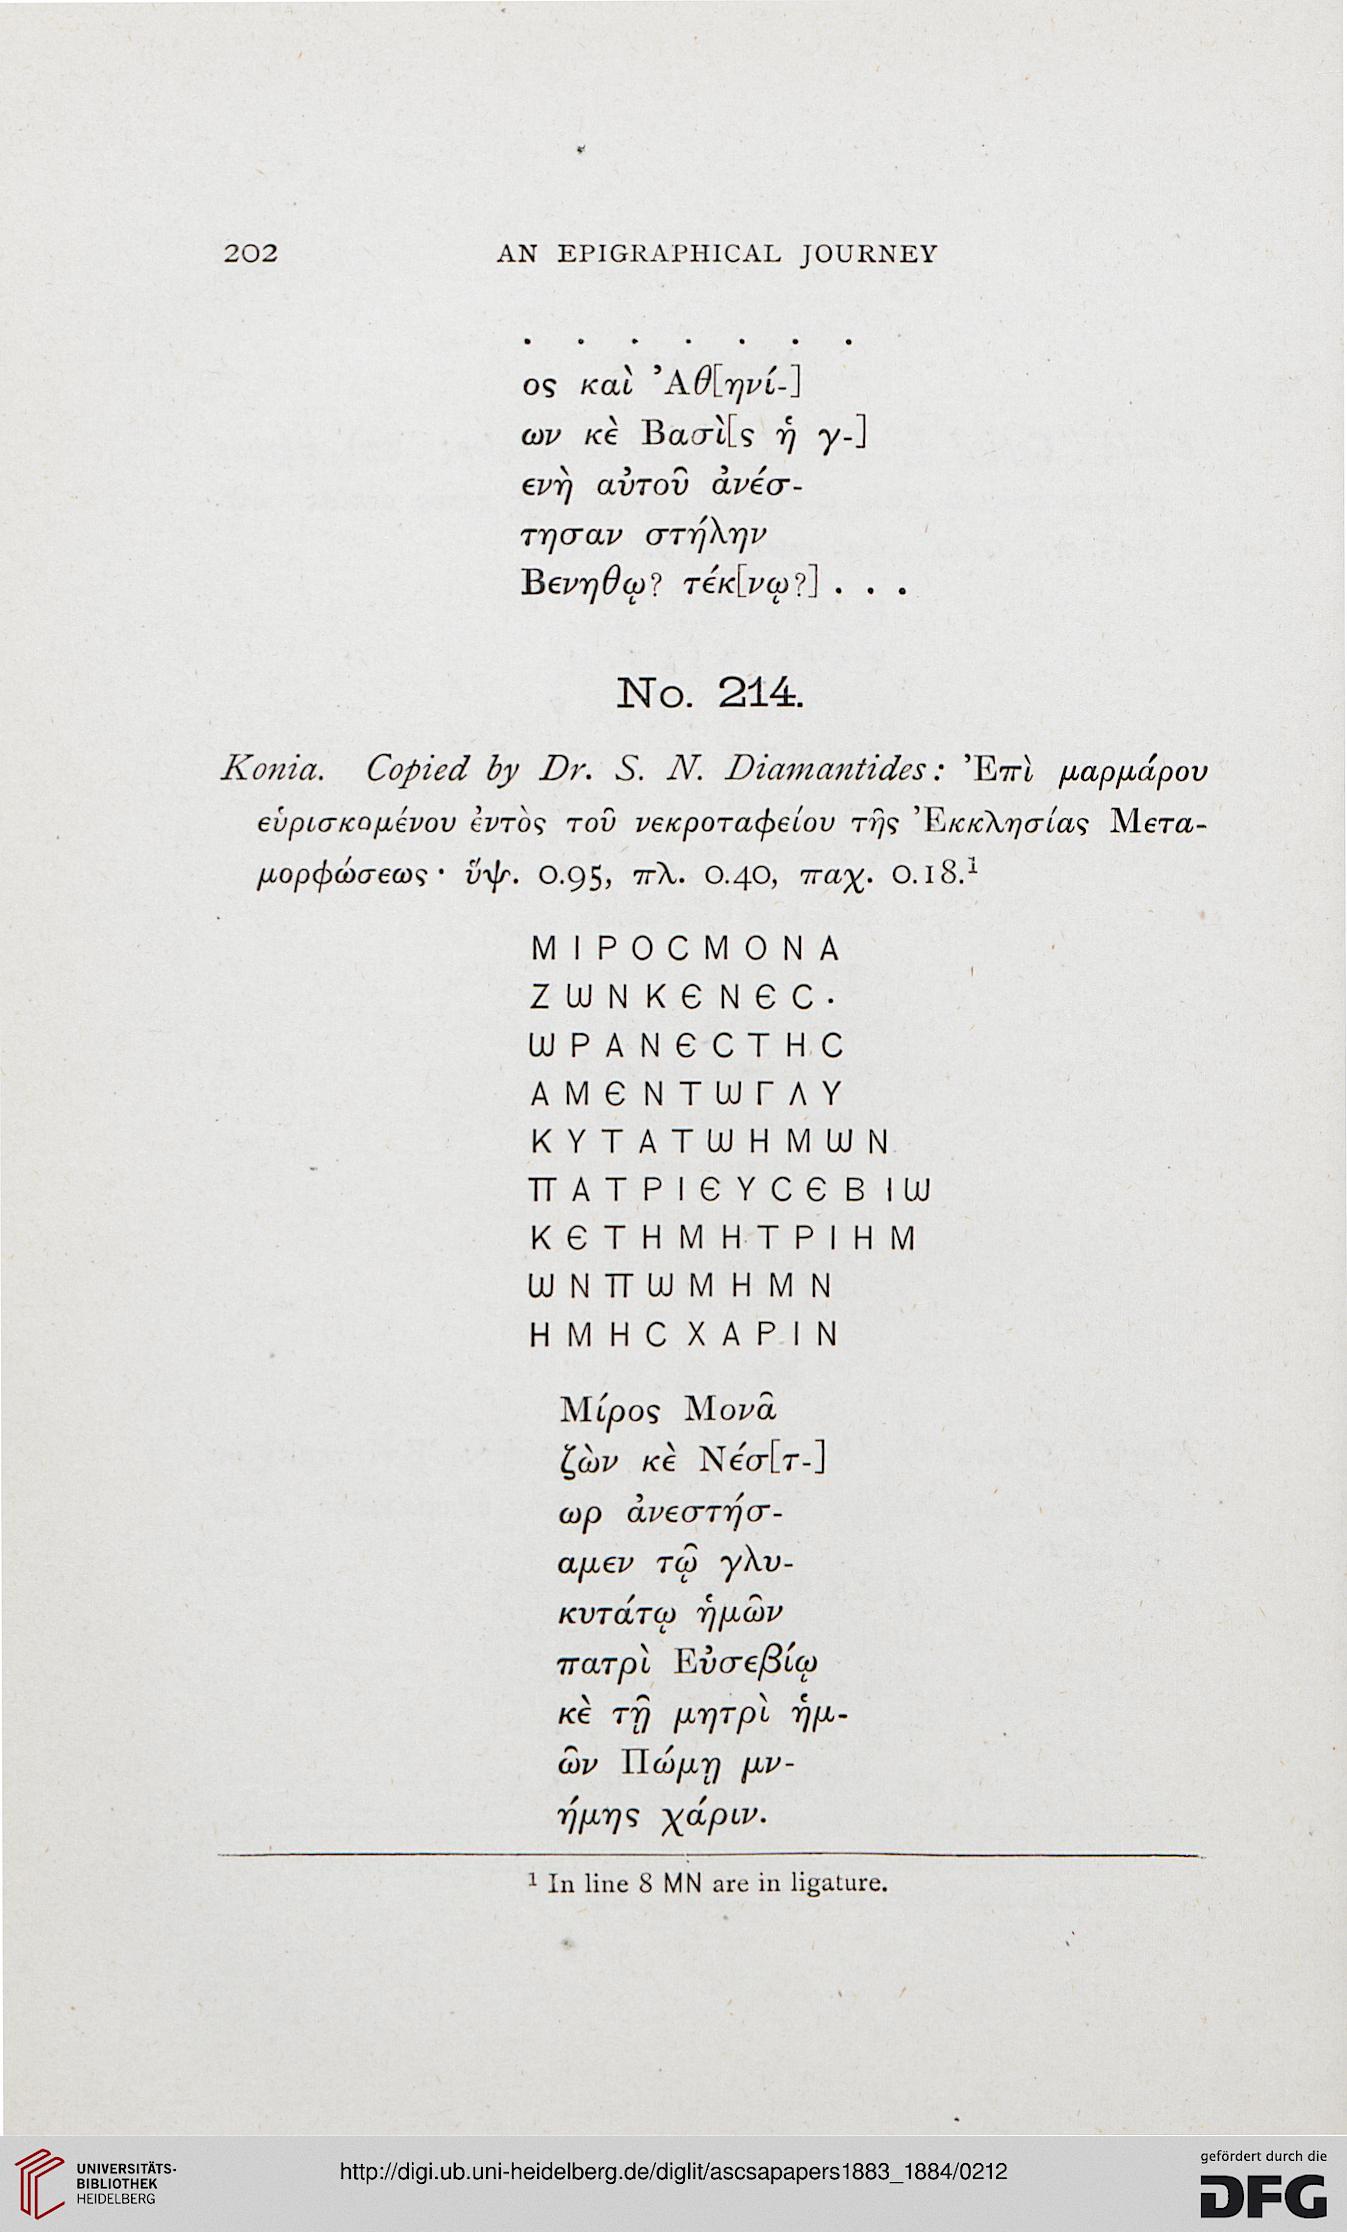 202 AN EPIGRAPHICAL JOURNEY
. . . . . . .
ος καὶ Ἀθ[ηνί-]
ων κὲ Βασὶ[ς ἡ γ-]
ενὴ αὐτοῦ ἀνέσ-
τησαν στήλην
Βενηθῳ? τέκ[νῳ?] . . .
No. 214.
Konia. Copied by Dr. S. N. Diamantides: Ἐπὶ μαρμάρου
εὑρισκομένου ἐντὸς τοῦ νεκροταφείου τῆς Ἐκκλησίας Μετα-
μορφώσεως· ὕψ. 0.95, πλ. 0.40, παχ. 0.18.¹
ΜΙΡΟϹΜΟΝΑ
ΖωΝΚЄΝЄϹ·
ωΡΑΝЄϹΤΗϹ
ΑΜЄΝΤωΓΛΥ
ΚΥΤΑΤωΗΜωΝ
ΠΑΤΡΙЄΥϹЄΒΙω
ΚЄΤΗΜΗΤΡΙΗΜ
ωΝΠωΜΗΜΝ
ΗΜΗϹΧΑΡΙΝ
Μίρος Μονᾶ
ζὼν κὲ Νέσ[τ-]
ωρ ἀνεστήσ-
αμεν τῷ γλυ-
κυτάτῳ ἡμῶν
πατρὶ Εὐσεβίῳ
κὲ τῇ μητρὶ ἡμ-
ῶν Πώμῃ μν-
ήμης χάριν.
¹ In line 8 MN are in ligature.
UNIVERSITÄTS-
BIBLIOTHEK
HEIDELBERG
http://digi.ub.uni-heidelberg.de/diglit/ascsapapers1883_1884/0212
gefördert durch die
DFG